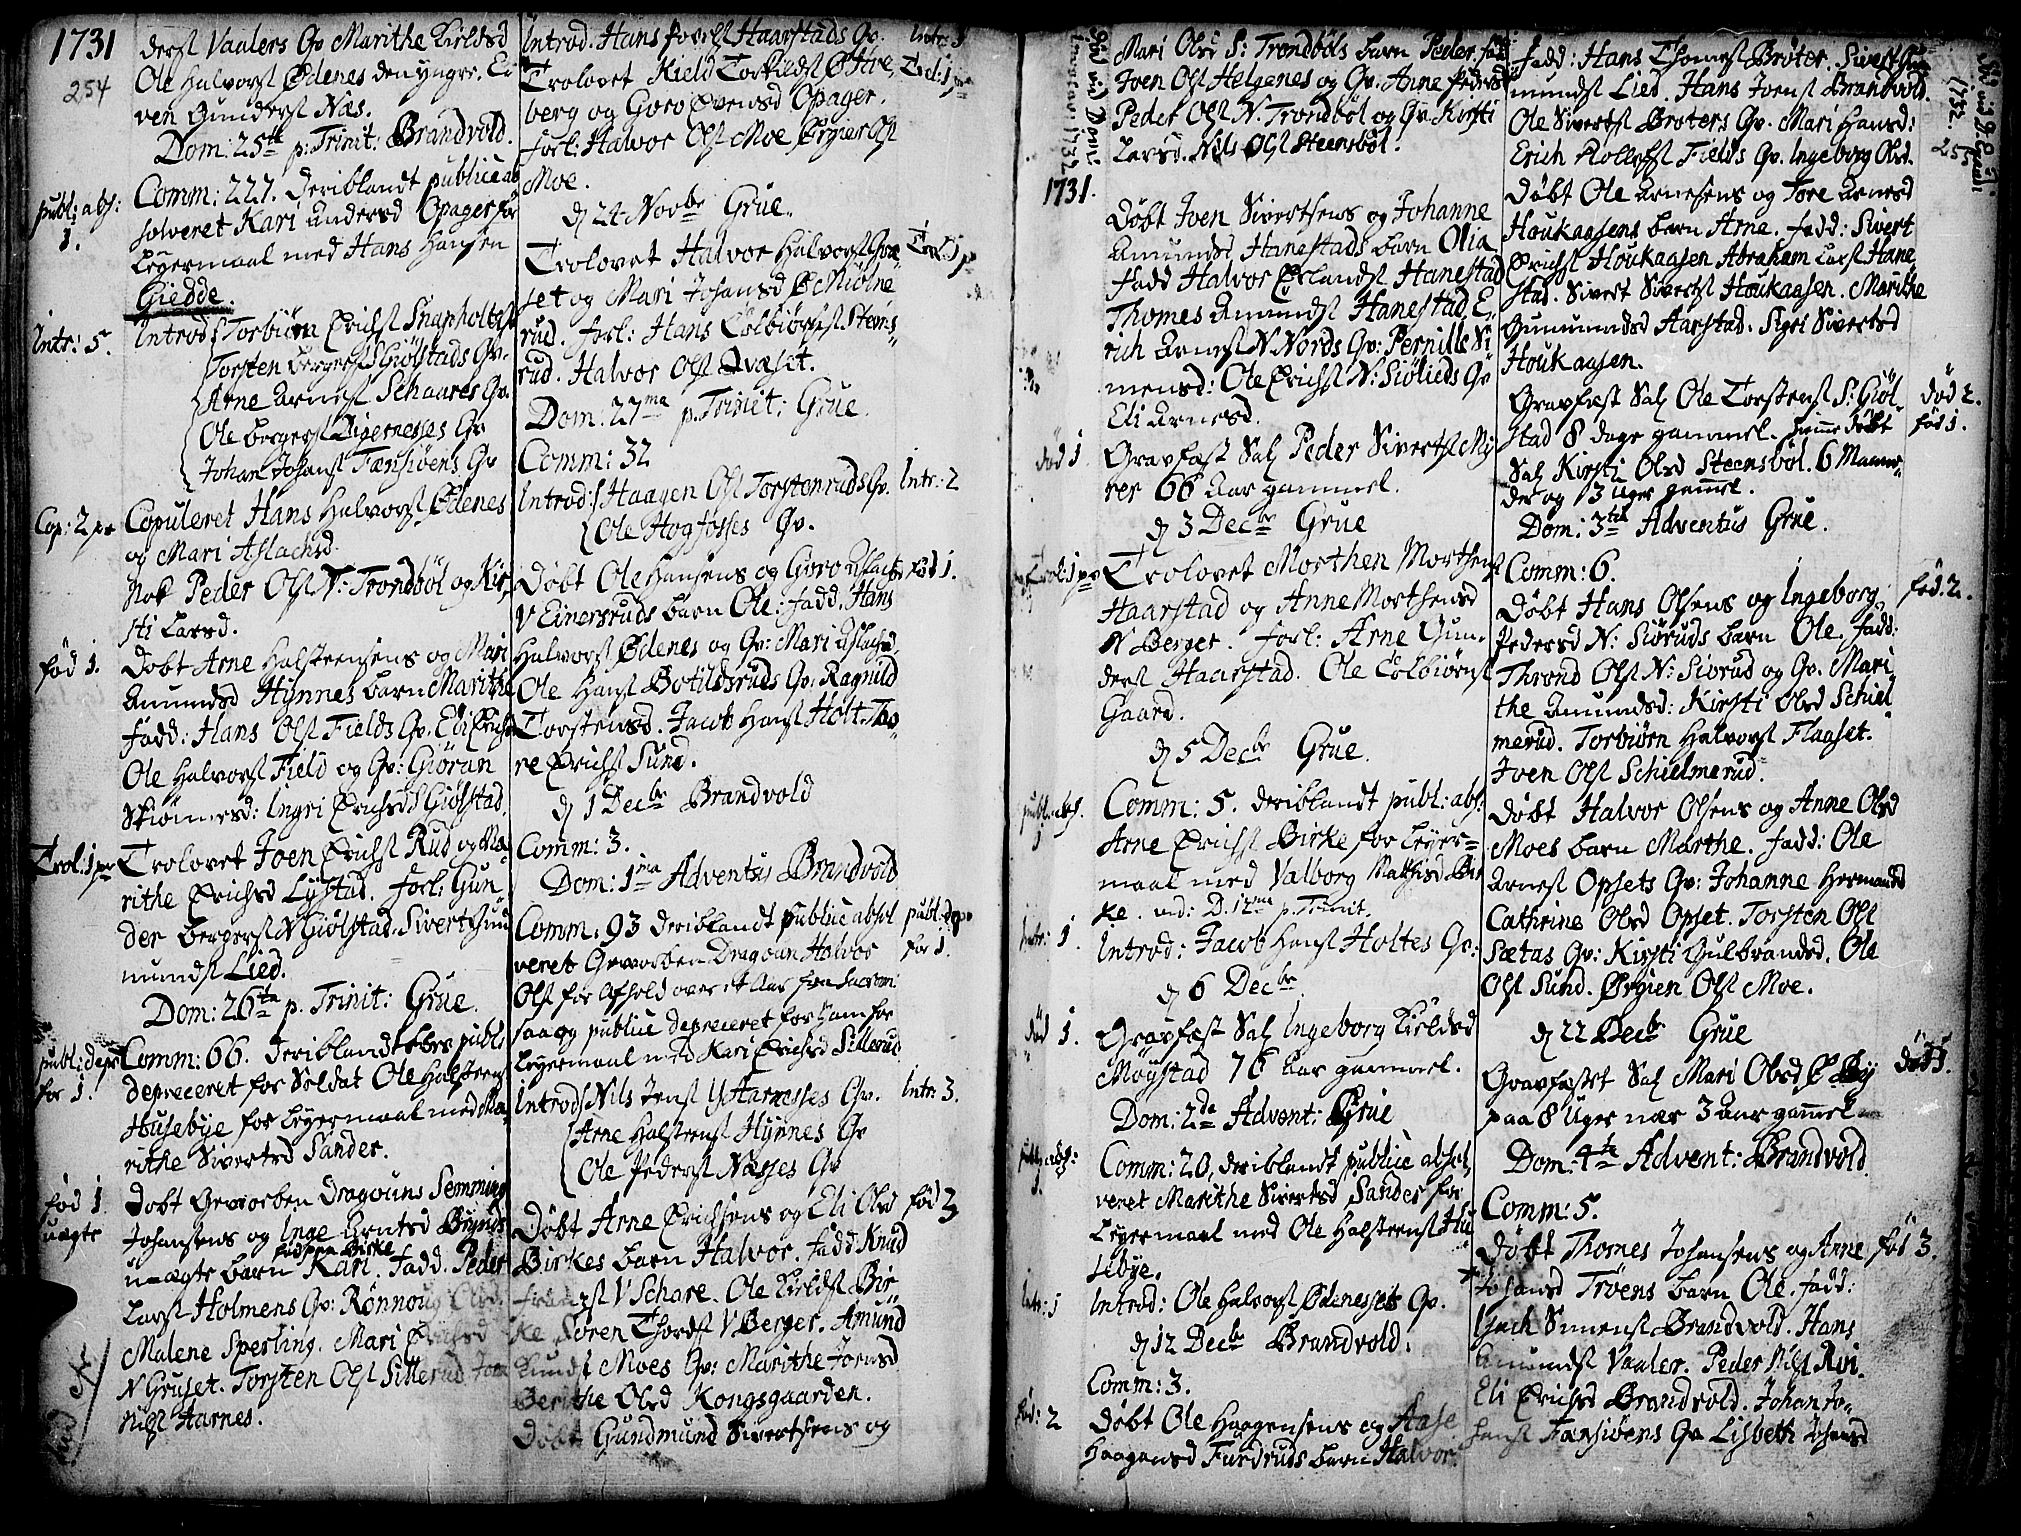 1731
254
derst Vaalers Qv. Marithe Kieldsd
Ole Halvorst Ødenes den yngre. Ei
ven Gunderst Næs.
Dom: 25te p. Trinit: Brandvold.
publ: abs:
1.
Comm: 227. deriblandt publice ab
solveret Kari Andersd Opager for
Leyermaal med Hans Hansen
Giedde.
Intr: 5.
Introd: Torbiörn Erichst Snapholts
Torsten Bergerst SGiölstads Qv.
Arne Arnest Schaares Qv.
Ole Bergerst Digernesses Qv
Johan Johanst Fænsiøens Qv
Cop: 2 pr
Copuleret Hans Halvorst Ødenes
og Mari Aslachsd.
Nok Peder Olst N: Trondböl og Kir
sti Larsd.
fød 1.
Døbt Arne Halsteensens og Mari
Amundsd Hynnes barn Marithe
fadd: Hans Olst Fields Qv. Eli Erichsd
Ole Halvorst Field og Qv: Giöran
Skiönnersd: Ingri Erichsd SGiölstad
Trol: 1 pr
Trolovet Joen Erichst Rud og Ma
rithe Erichsd Lystad. forl: Gun
der Bergerst NGiölstad. Sivert Gud
mundst Lied.
Dom: 26ta p. Trinit: Grue.
publ: depr
for 1.
Comm: 66. deriblandt publ:
depreceret for Soldat Ole Halsteens
Husebye for Leyermaal med Ma
rithe Sivertsd Sander.
fød 1
uægte
Døbt Geworben Dragouns Semming
Johansens og Inge Arntsd
fød paa Birke
u-ægte barn Kari. Fadd. Peder
Larst Holmens Qv: Rönnoug Olsd.
Malene Sperling. Mari Erichsd
N Gruset. Torsten Olst Sillerud Joen
Nilst Harnes.
Introd: Hans Haarstads Qv.
Intr: 1
Trolovet Kield Torkildst Ø
Trol: 1 pr
berg og Goro Evensd Opager.
forl: Halvor Olst Moe Ørgier Olst
Moe.
d 24 Novbr Grue.
Trolovet Halvor Halvorst Qvæ
Trol: 1 pr
set og Mari Johansd Ø Mölne
rud. forl: Hans Colbiörst Stems
rud. Halvor Olst Qvæset.
Dom: 27ma p. Trinit: Grue.
Comm: 32
Introd: Haagen Olst Torstenruds Qv.
Intr: 2
Ole Hogfosses Qv.
Døbt Ole Hansens og Goro Aslachsd
fød 1.
V Einersruds barn Ole: fadd. Hans
Halvorst Ødenes og Qv: Mari Aslachsd.
Ole Hanst Botildsruds Qv: Ragnild
Torstensd. Jacob Hanst Holt. Tho
re Erichst Sund.
d 1 Decbr Brandvold
Comm: 3.
Dom: 1ma Adventus Brandvold
Comm: 93 deriblandt publice absol
publ: depr
for 1.
veret Geworben Dragoun Halvor
Olst for Afhold over et Aar fra Sacram:
saa og publice depreceret for ham for
Leyermaal med Kari Erichsd Sillerud
Introd: Nils Jenst Y Harnesses Qv.
Intr: 3.
Arne Halsteenst Hynnes Qv
Ole Pederst Næsses Qv
Døbt Arne Erichsens og Eli Olsd
fød 3
Birkes barn Halvor. Fadd Knud
V Schare. Ole Kieldst Bir
ke Sören Thordst V Berger. Amund
Moes Qv: Marithe Joensd
Berithe Olsd Kongsgaarden.
Døbt Gundmund Sivertsens og
Mari Olsd S: Trondböls barn Peder. fadd
Joen Olst Helgenes og Qv. Anne Pedersd
Peder Olst N. Trondböl og Qv. Kirsti
Larsd. Nils Olst Steensböl.
1731.
Döbt Joen Sivertsens og Johanne
Amundsd Hanestads barn Olia
Fadd Halvor Erlandst Hanestad
Thomes Amundst Hanestad. E
rich Arnest N Nords Qv: Pernille Si
mensd: Ole Erichst N: Siölieds Qv
Eli Arnesd.
død 1.
Gravfæst Sal Peder Sivertst My
rer 66 Aar gammel.
d 3 Decbr Grue
Trol: 1 pr
Trolovet Morthen Morthenst
Haarstad og Anne Morthensd
N Berger. forl: Arne Gun
derst Haarstad. Ole Colbiörnst
Gaard.
d 5 Decbr Grue.
publ: abs.
1
Comm: 5. deriblandt publ: abs:
Arne Erichst Birke for Leyer=
maal med Valborg Mathisd Bir
ke. vid: D. 12ma p. Trinit.
Intr: 1.
Introd: Jacob Hanst Holtes Qv:
d 6 Decbr
død 1
Gravfæst Sal Ingeborg Kieldsd
Möystad 76 Aar gammel.
Dom: 2da Advent: Grue
publ: abs:
1.
Comm: 20, deriblandt publice absol
veret Marithe Sivertsd Sander for
Leyermaal med Ole Halsteenst Hu
sebye.
Intr: 1
Introd: Ole Halvorst Ødenesses Qv.
d 12 Decbr Brandvold.
Comm: 3.
fød: 2
Döbt Ole Haagensens og Aase
Haagensd Furdruds barn Halvor.
Fadd: Hans Thomest Bröter. Sivert Gud
mundst Lied. Hans Joenst Brandvold.
1732.
255
Ole Sivertst Bröters Qv. Mari Hansd:
Erich Rollefst Fields Qv. Ingeborg Olsd.
Döbt Ole Arnesens og Tore Arnesd
Houkaasens barn Arne. fadd: Sivert
Erichst Houkaasen Abraham Larst Hane
stad. Sivert Sivertst Houkaasen. Marithe
Gunnundsd Aarstad. Sigri Sivertsd
Houkaasen.
Gravfæst Sal Ole Torstenst S: Giöl
død 2.
stad 8 dage gammel. hiemme döbt
fød 1.
Sal Kirsti Olsd Steensböl. 6 Maane
der og 3 Uger gammel.
Dom: 3tia Adventus Grue.
Comm: 6.
Döbt Hans Olsens og Ingeborg
fød. 2.
Pedersd N: Siöruds barn Ole. fadd:
Thrond Olst N: Siörud og Qv. Mari
the Amundsd: Kirsti Olsd Schiel
merud. Torbiörn Halvorst Flaaset.
Joen Olst Schielmerud.
Döbt Halvor Olsens og Anne Olsd
Moes barn Marthe. Fadd: Ole
Arnest Opsets Qv: Johanne Hermansd
Cathrine Olsd Opset. Torsten Olst
Sætas Qv: Kirsti Gulbrandsd. Ole
Olst Sund. Ørgien Olst Moe.
d 22 Decbr Grue
Gravfæstet Sal Mari Olsd Ø By
død 1.
paa 8 Uger nær 3 Aar gammel
Dom: 4te Advent: Brandvold
Comm: 5.
Döbt Thomes Johansens og Anne
fød 3.
Johansd Tröens barn Ole. fadd:
Isach Simenst Brandvold. Hans
Amundst Vaaler. Peder Nilst Roi.
Eli Erichsd Brandvold. Johan Jo
hanst Fænsiöens Qv Lisbeth Johansd